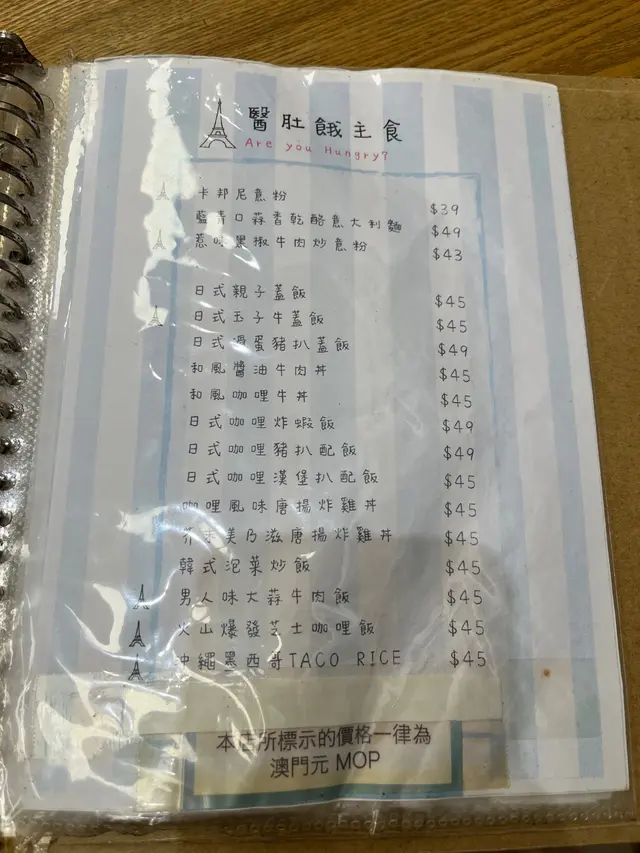 醫肚餓主食
Are you Hungry?
卡邦尼意粉 $39
藍青口蒜香乾酪意大利麵 $49
惹味黑椒牛肉炒意粉 $43
日式親子蓋飯 $45
日式玉子牛蓋飯 $45
日式滑蛋豬扒蓋飯 $49
和風醬油牛肉丼 $45
和風咖哩牛丼 $45
日式咖哩炸蝦飯 $49
日式咖哩豬扒配飯 $49
日式咖哩漢堡扒配飯 $45
咖哩風味唐揚炸雞丼 $45
芥末美乃滋唐揚炸雞丼 $45
韓式泡菜炒飯 $45
男人味大蒜牛肉飯 $45
火山爆發芝士咖哩飯 $45
沖繩墨西哥TACO RICE $45
本店所標示的價格一律為
澳門元 MOP